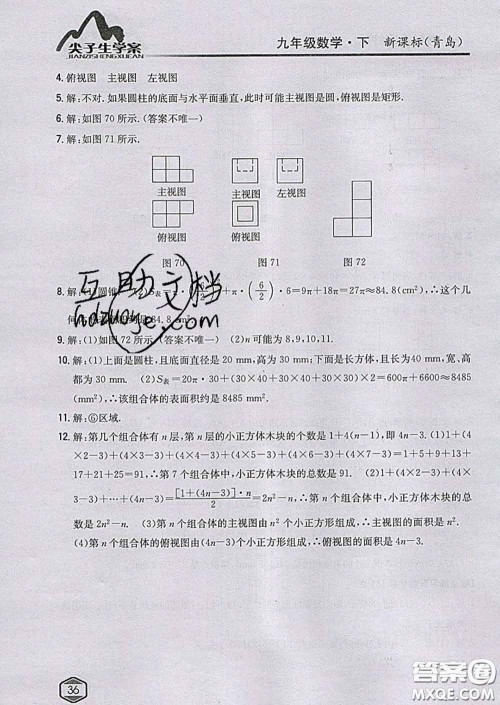 尖子生学案
JIANZISHENGXUEAN
九年级数学·下 新课标(青岛)
4. 俯视图 主视图 左视图
5. 解:不对. 如果圆柱的底面与水平面垂直,此时可能主视图是圆,俯视图是矩形.
6. 解:如图 70 所示. (答案不唯一)
7. 解:如图 71 所示.
主视图 主视图 左视图
俯视图 俯视图
图 70 图 71 图 72
互助文档
hdzuoye.com
8. 解:(1)圆锥
·6=9π+18π=27π≈84.8(cm²),∴这个几
9. 解:(1)如图 72 所示. (答案不唯一) (2)n 可能为 8,9,10,11.
10. 解:(1)上面是圆柱,且底面直径是 20 mm,高为 30 mm;下面是长方体,且长为 40 mm,宽、高
都为 30 mm. (2)S表=20π×30+(30×40+30×40+30×30)×2=600π+6600≈8485
(mm²),∴该组合体的表面积约是 8485 mm².
11. 解:⑥区域.
12. 解:第几个组合体有 n 层,第 n 层的小正方体木块的个数是 1+4(n-1),即 4n-3. (1)1+(4
×2-3)+(4×3-3)+(4×4-3)+(4×5-3)+(4×6-3)+(4×7-3)=1+5+9+13+
17+21+25=91,∴第 7 个组合体,小正方体木块的总数是 91. (2)1+(4×2-3)+(4×
3-3)+…+(4n-3)=[1+(4n-3)]·n/2=2n²-n,∴第 n 个组合体,小正方体木块的总数是
2n²-n. (3)第 n 个组合体的主视图由 n² 个小正方形组成,∴主视图的面积是 n².
(4)第 n 个组合体的俯视图由(4n-3)个小正方形组成,∴俯视图的面积是(4n-3).
36
答案圈
MXQE.COM